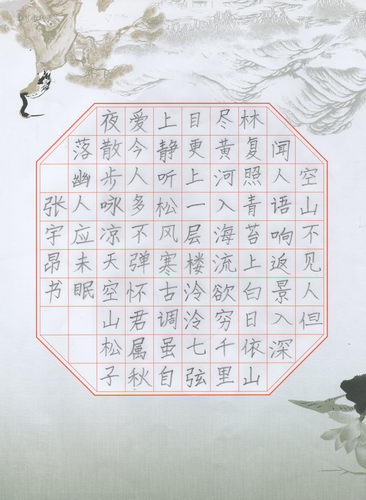 空山不见人但
闻人语响返景入深
林复照青苔上白日依山
尽黄河入海流欲穷千里
目更上一层楼泠泠七弦
上静听松风寒古调虽自
爱今人多不弹怀君属秋
夜散步咏凉天空山松子
落幽人应未眠
张宇昂书